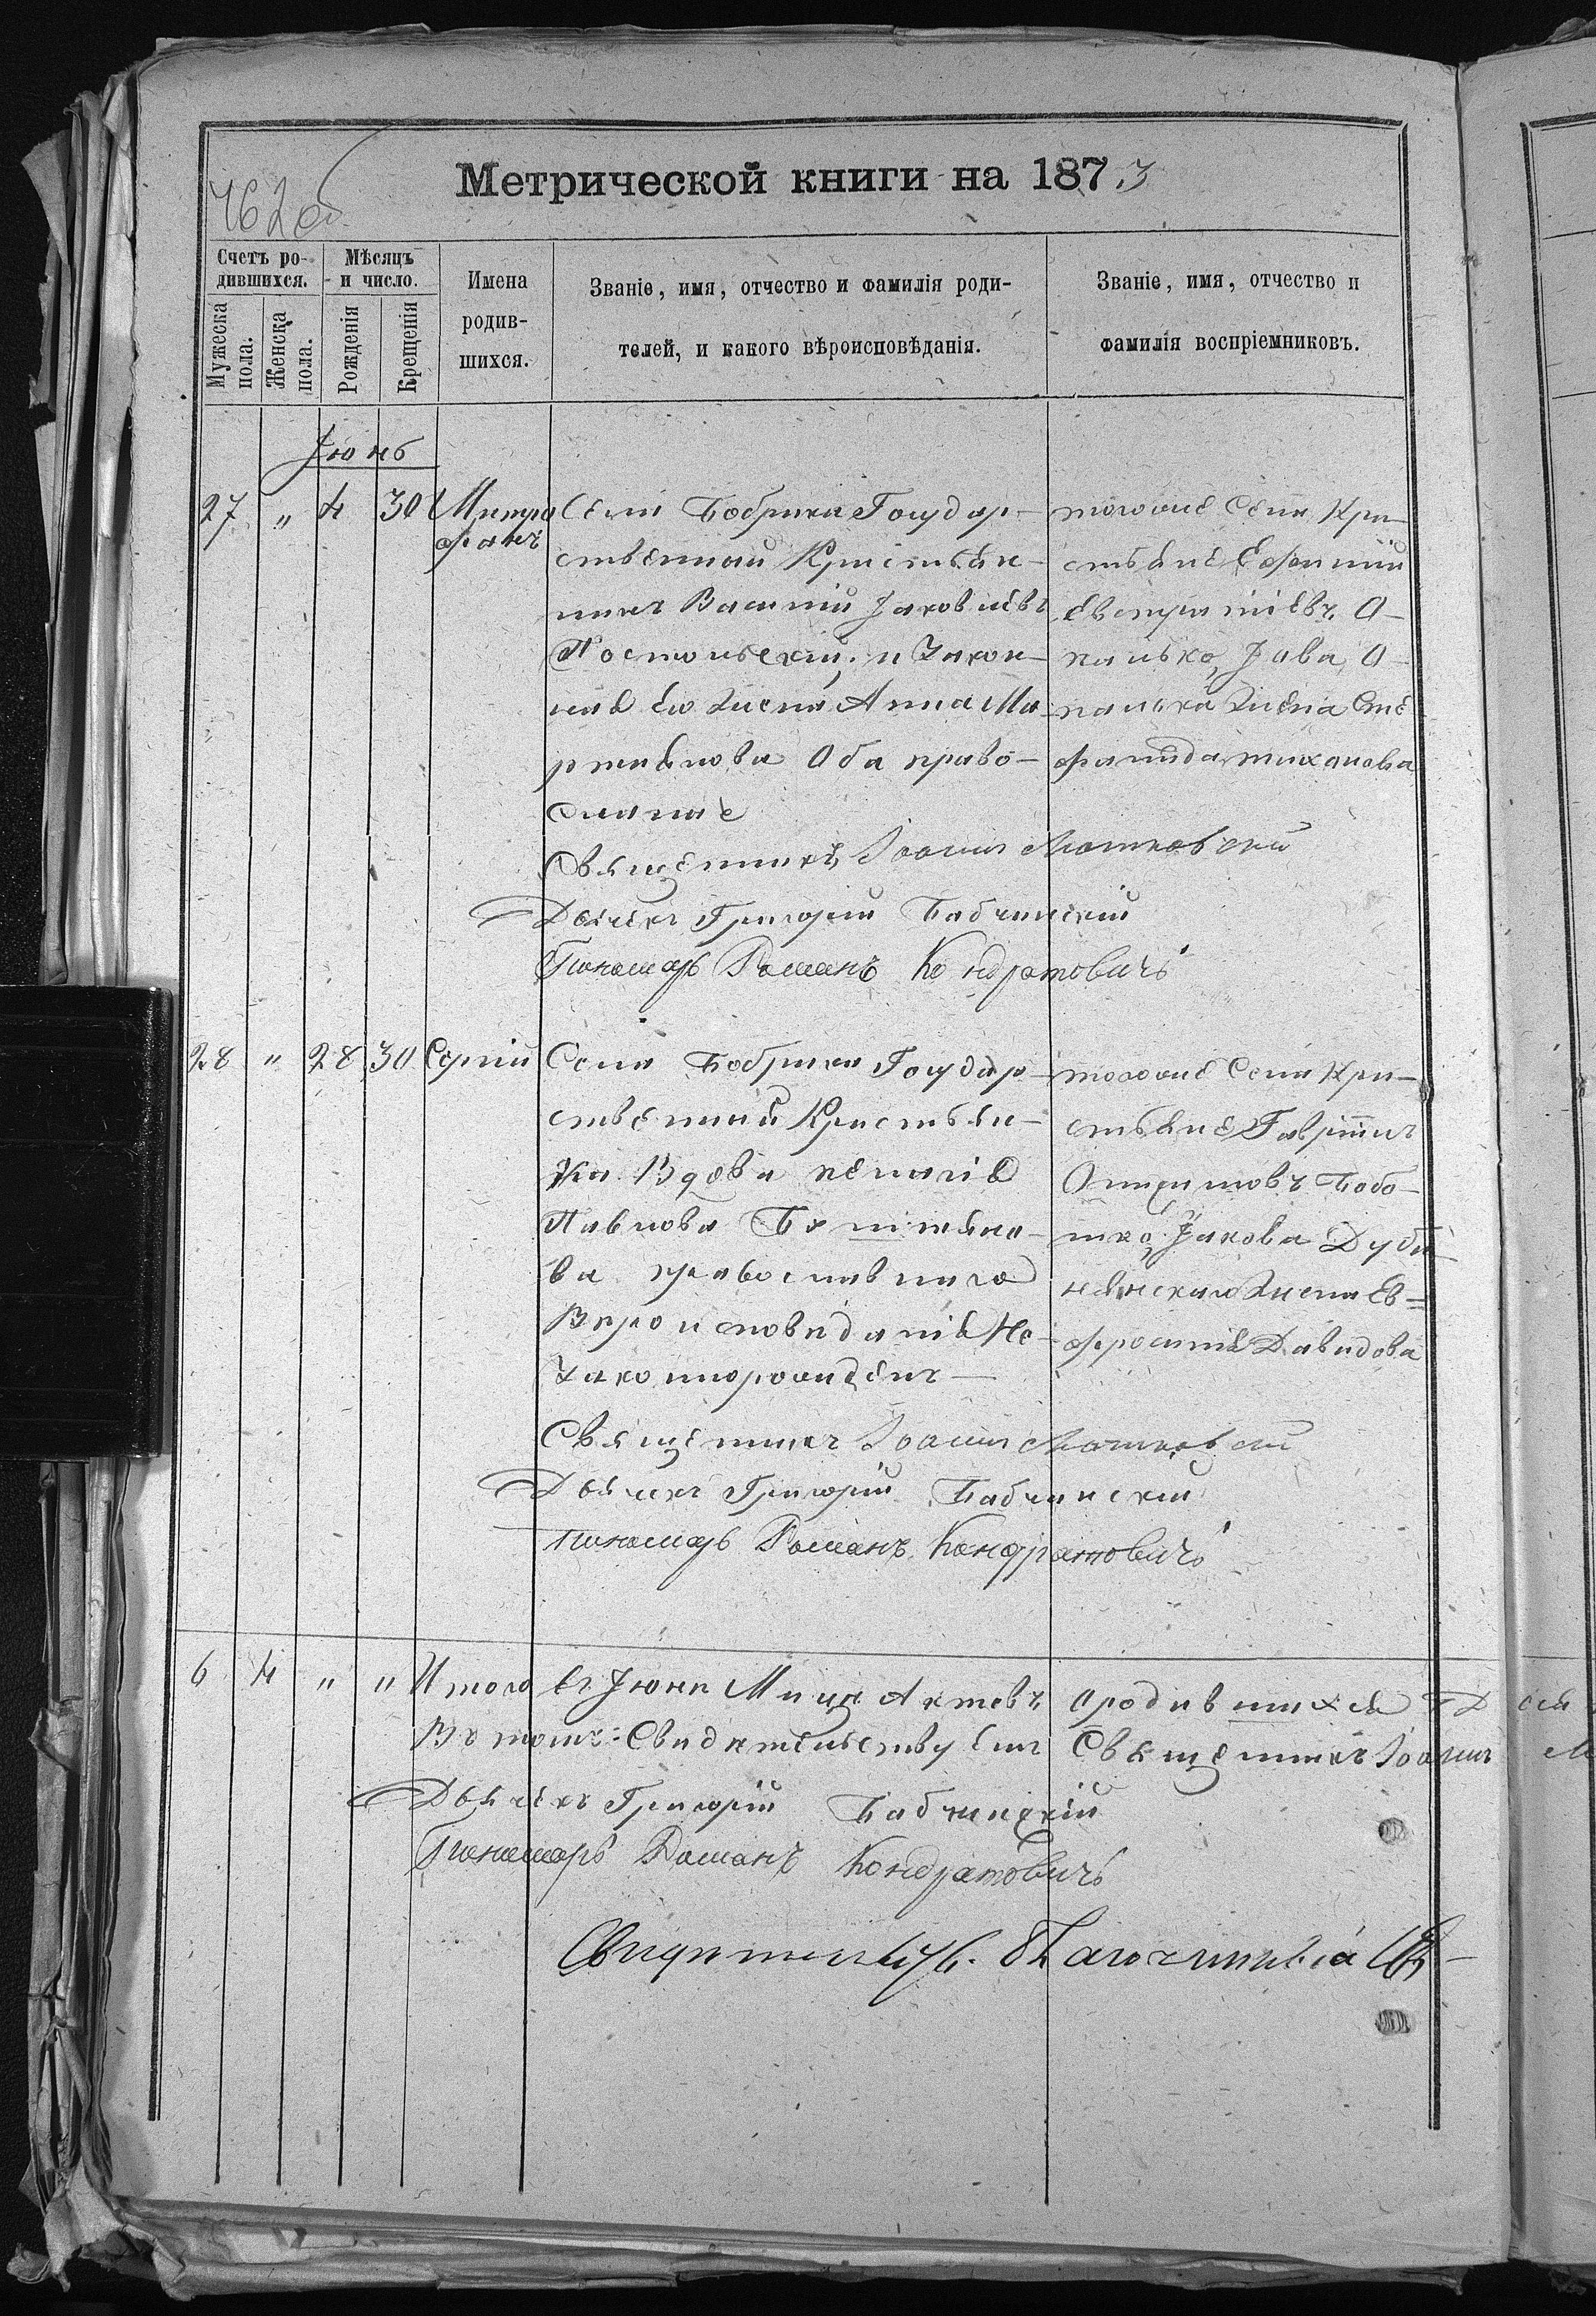 Метрической книги на 1873
762 об.
Счетъ ро-
дившихся.
Мѣсяцъ
и число.
Мужеска
пола.
Женска
пола.
Рожденія
Крещенія
Имена
родив-
шихся.
Званіе, имя, отчество и фамилія роди-
телей, и какого вѣроисповѣданія.
Званіе, имя, отчество и
фамилія воспріемниковъ.
Іюнь
27 " 4 30 Митро
фанъ
Села Бобрика Государ-
ственный Кристьян-
никъ Василій Яковлевъ
Постольскій, и Закон-
ная Его Жена Анна Ма-
ртынова Оба право-
славные
тогоже Села Кри-
стьяне Ефимій
Евстратіевъ О-
палько, Іова О-
палька Жена Сте
фанида тиханова
Священникъ Іоаннъ
Дьячекъ Григорій Бабчинскій
Пономарь Романъ Кондратовичъ
28 " 28 30 Сергій
Села Бобрика Государ-
ственный Кристьян-
ка Вдова
Павлова
ва православнаго
Вероисповеданія Не-
Законнорожденъ
тогоже Села Кри-
стьяне Гавріилъ
Бобо-
шко, Якова Дуби-
нянскаго Жена Ев=
фросинія Давидова
Священникъ Іоаннъ
Дьячекъ Григорій Бабчинскій
Пономарь Романъ Кондратовичъ
6 4 " " Итого въ Іюни Месяц Актовъ ородившихся
Въ томъ: Свидетельствуемъ Священникъ Іоаннъ
Дьячекъ Григорій Бабчинскій
Пономарь Романъ Кондратовичъ